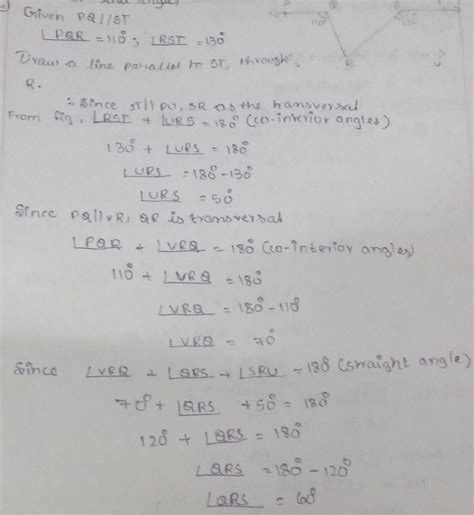 Given PQ//ST
∠PQR = 110°; ∠RST = 130°
Draw a line parallel to ST, through
R.
∴ Since ST//RU, SR as the transversal
From fig, ∠RST + ∠URS = 180° (co-interior angles)
130° + ∠URS = 180°
∠URS = 180° - 130°
∠URS = 50°
Since PQ||VR; QR is transversal
∠PQR + ∠VRQ = 180° (co-interior angles)
110° + ∠VRQ = 180°
∠VRQ = 180° - 110°
∠VRQ = 70°
Since ∠VRQ + ∠QRS + ∠SRU = 180° (straight angle)
70° + ∠QRS + 50° = 180°
120° + ∠QRS = 180°
∠QRS = 180° - 120°
∠QRS = 60°